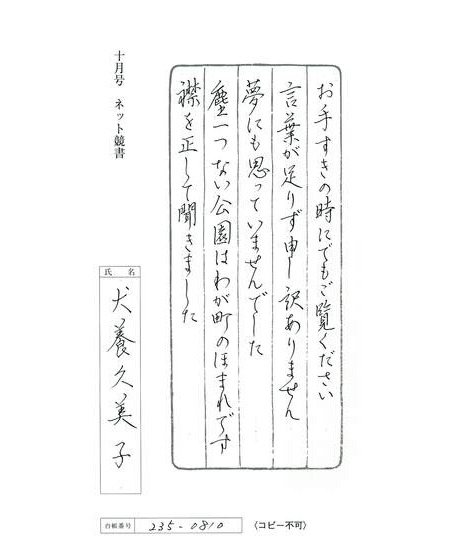 お手すきの時にでもご覧ください
言葉が足りず申し訳ありません
夢にも思っていませんでした
塵一つない公園はわが町のほまれです
襟を正して聞きました
十月号　ネット競書
氏名
犬養久美子
台帳番号
235-0810
〈コピー不可〉